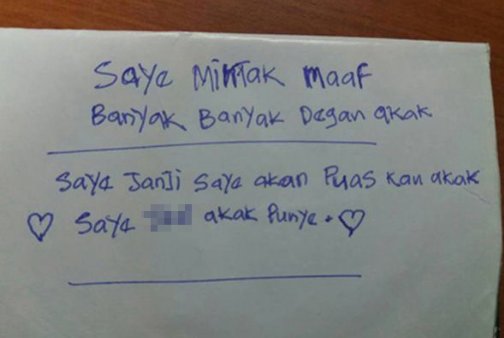 Saye Mintak maaf
Banyak Banyak Degan akak
Saye Janji Saye akan Puas kan akak
♡ Saye akak Punye. ♡